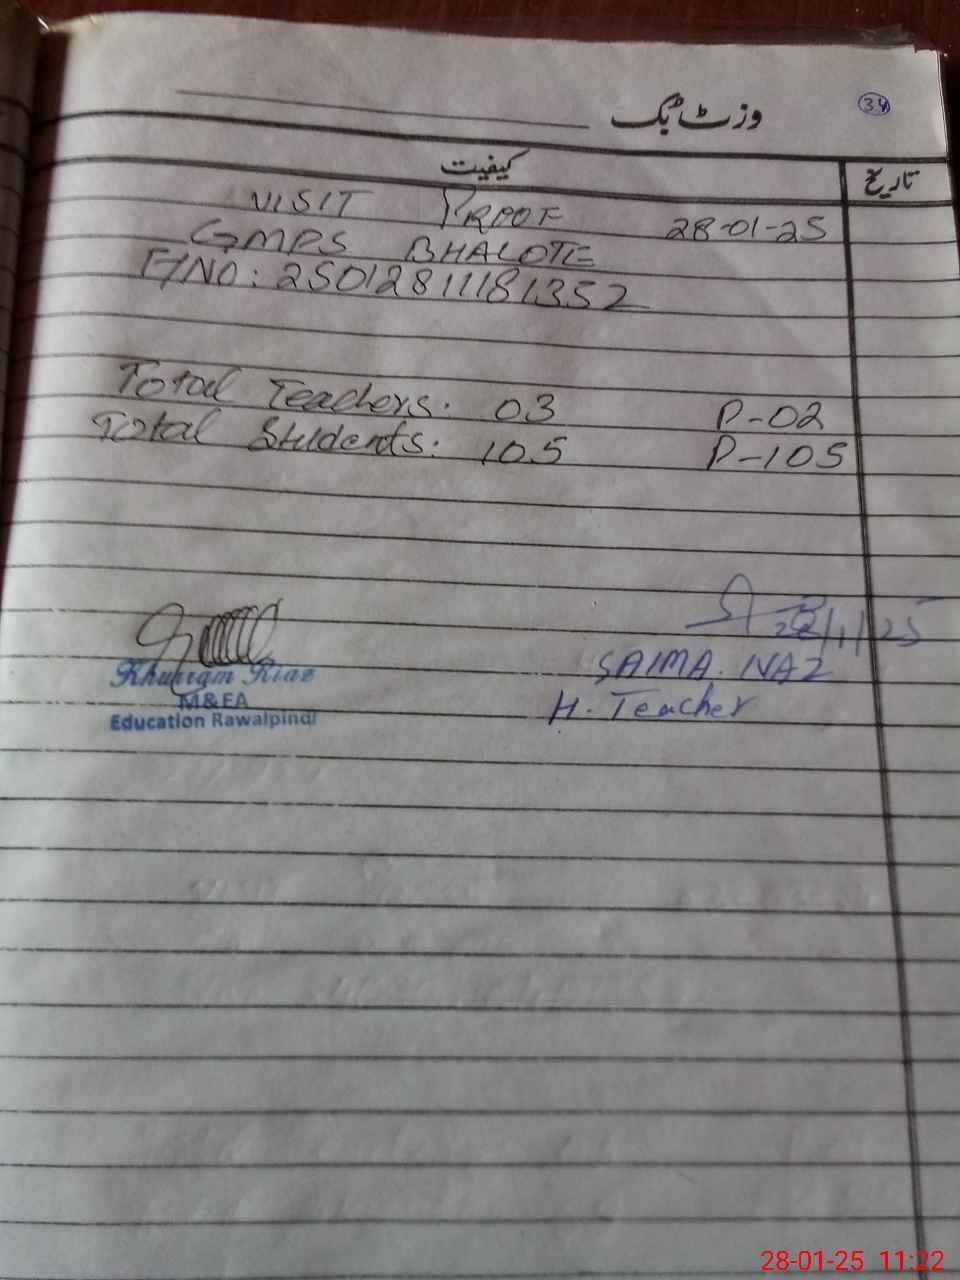 34
وزٹ بک
کیفیت
تاریخ
VISIT PROOF 28-01-25
GMPS BHALOTE
F/NO: 25012811181352
Total Teachers: 03 P-02
Total Students: 105 P-105
28/1/25
Khurram Riaz
M&EA
Education Rawalpindi
SAIMA. NAZ
H. Teacher
28-01-25 11:22